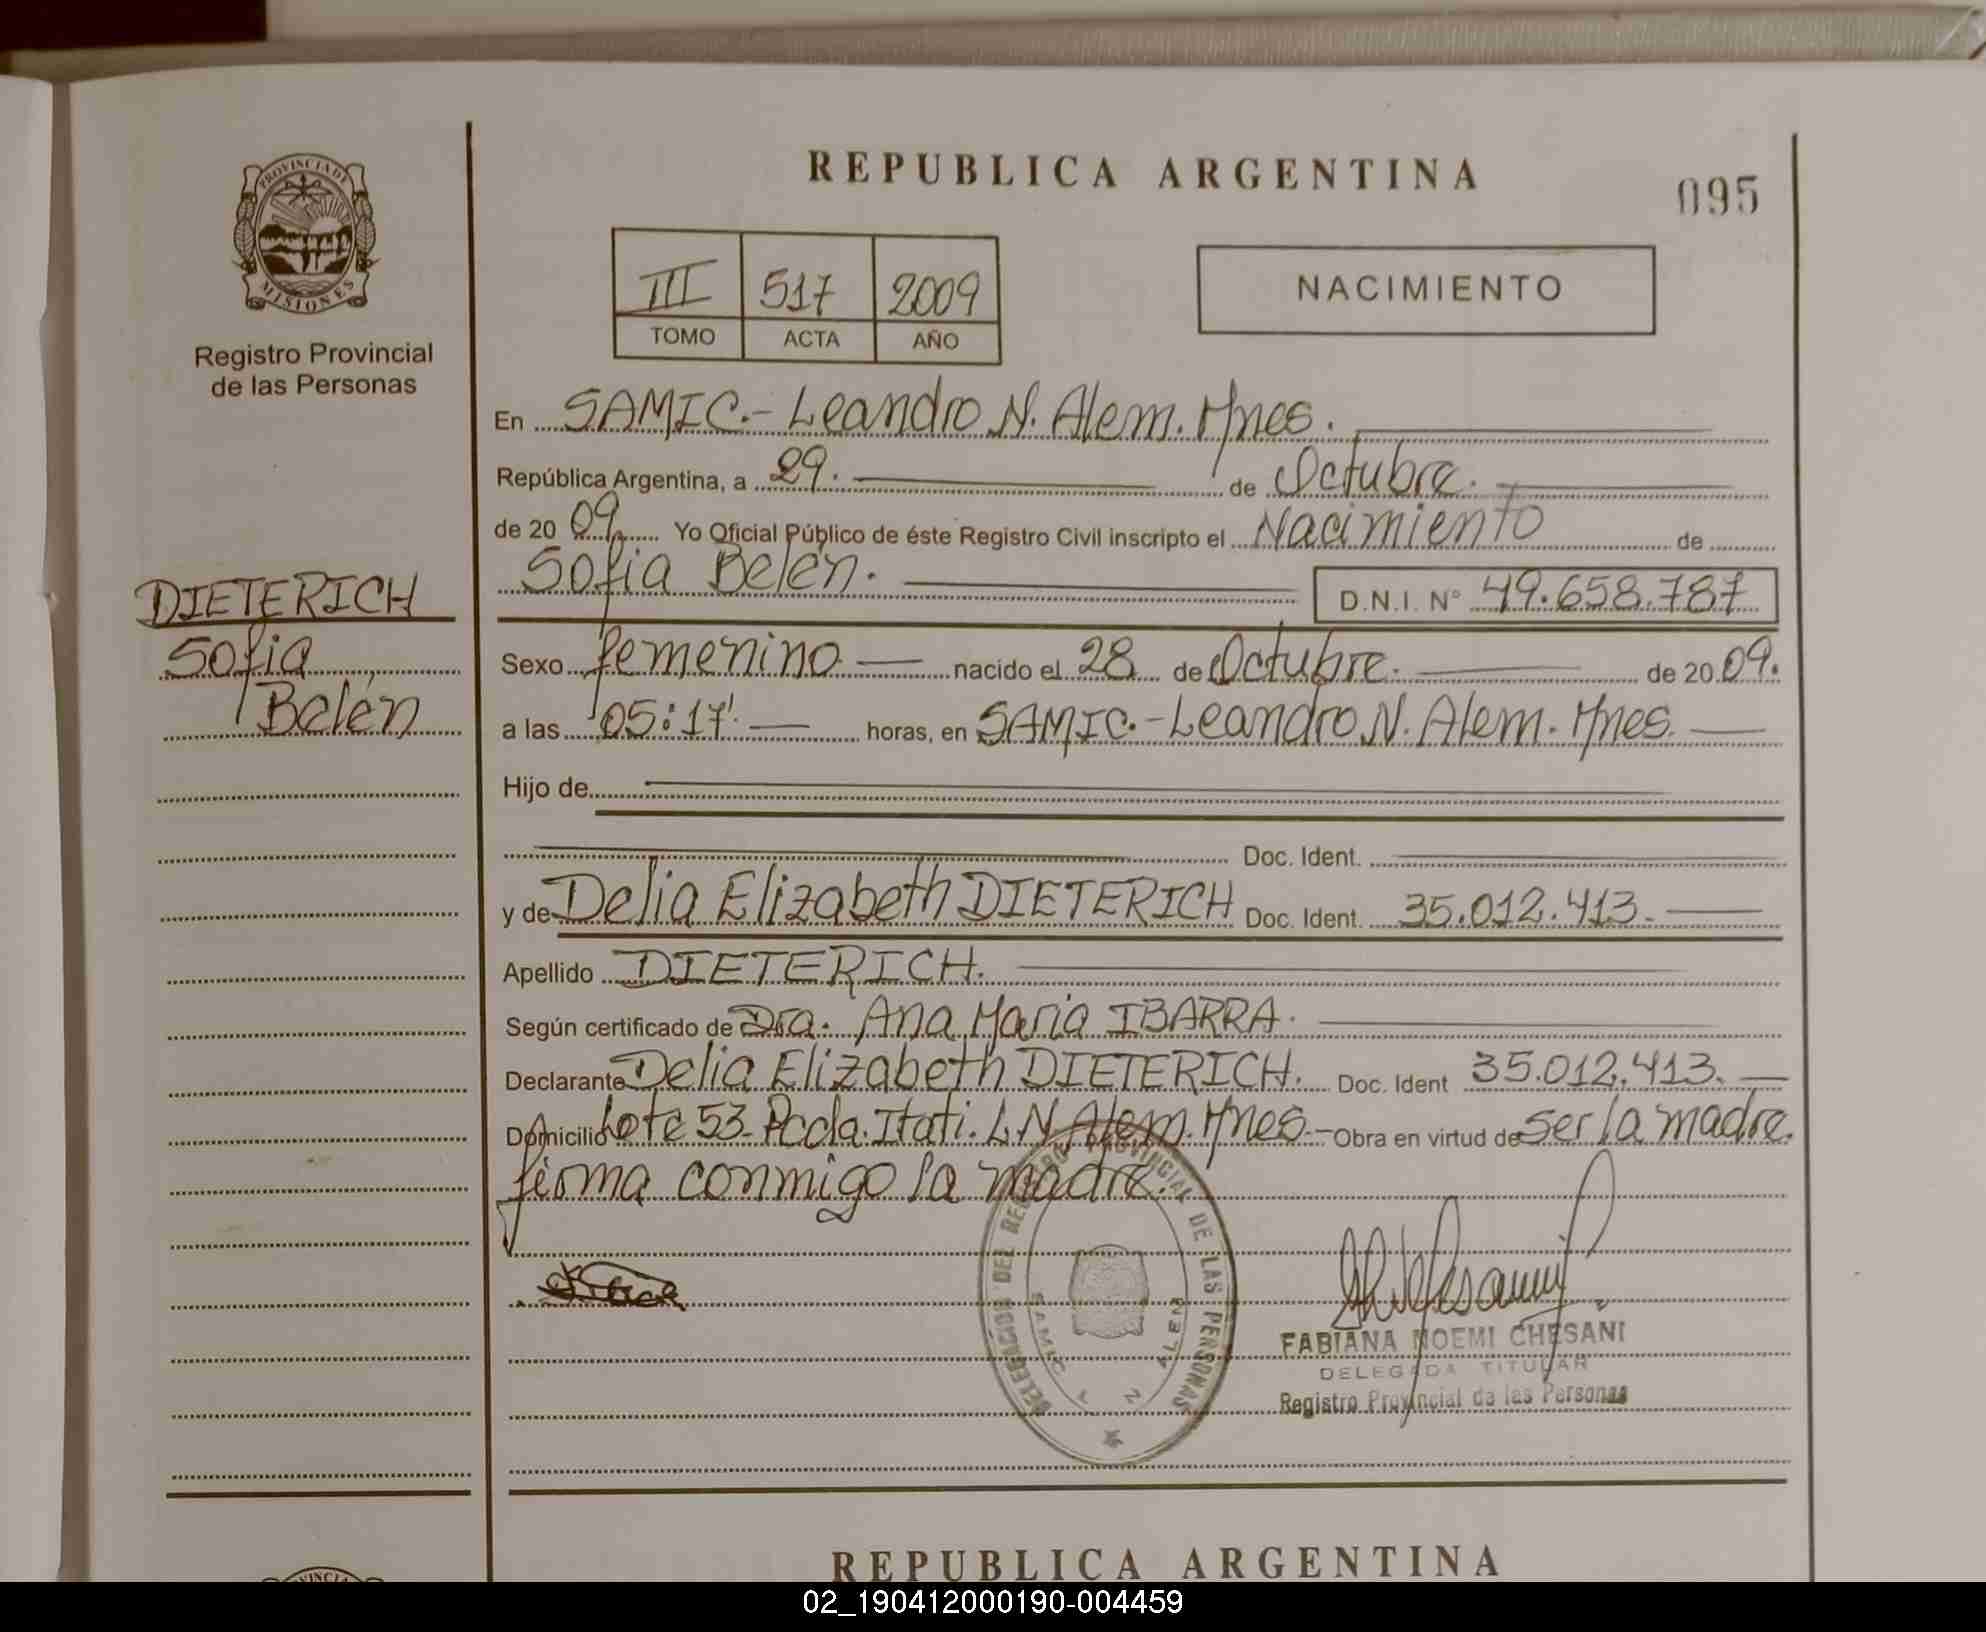 REPUBLICA ARGENTINA
095
PROVINCIA DE MISIONES
Registro Provincial
de las Personas
III 517 2009
TOMO ACTA AÑO
NACIMIENTO
En SAMIC.- Leandro N. Alem. Mnes.
República Argentina, a 29. de Octubre.
de 20 09. Yo Oficial Público de éste Registro Civil inscripto el Nacimiento de
Sofia Belén. D.N.I. N° 49.658.787
DIETERICH
Sofia
Belén
Sexo femenino nacido el 28 de Octubre. de 20 09.
a las 05:17'. horas, en SAMIC.- Leandro N. Alem. Mnes.
Hijo de
Doc. Ident.
y de Delia Elizabeth DIETERICH Doc. Ident. 35.012.413.
Apellido DIETERICH.
Según certificado de Dra. Ana Maria IBARRA.
Declarante Delia Elizabeth DIETERICH. Doc. Ident 35.012.413.
Domicilio Lote 53- Pcela. Itati. L.N. Alem. Mnes.- Obra en virtud de ser la madre.
firma conmigo la madre.
DELEGACION DEL REGISTRO PROVINCIAL DE LAS PERSONAS
SAMIC L N ALEM
FABIANA NOEMI CHESANI
DELEGADA TITULAR
Registro Provincial de las Personas
REPUBLICA ARGENTINA
02_190412000190-004459